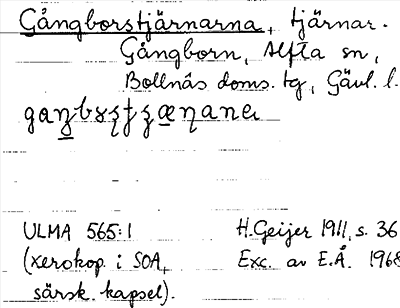 Gångborstjärnarna, tjärnar.
Gångborn, Alfta sn,
Bollnäs doms. tg, Gävl. l.
ULMA 565:1 H.Geijer 1911, s. 36
(xerokop. i SOA, Exc. av E.Å. 1968
särsk. kapsel).